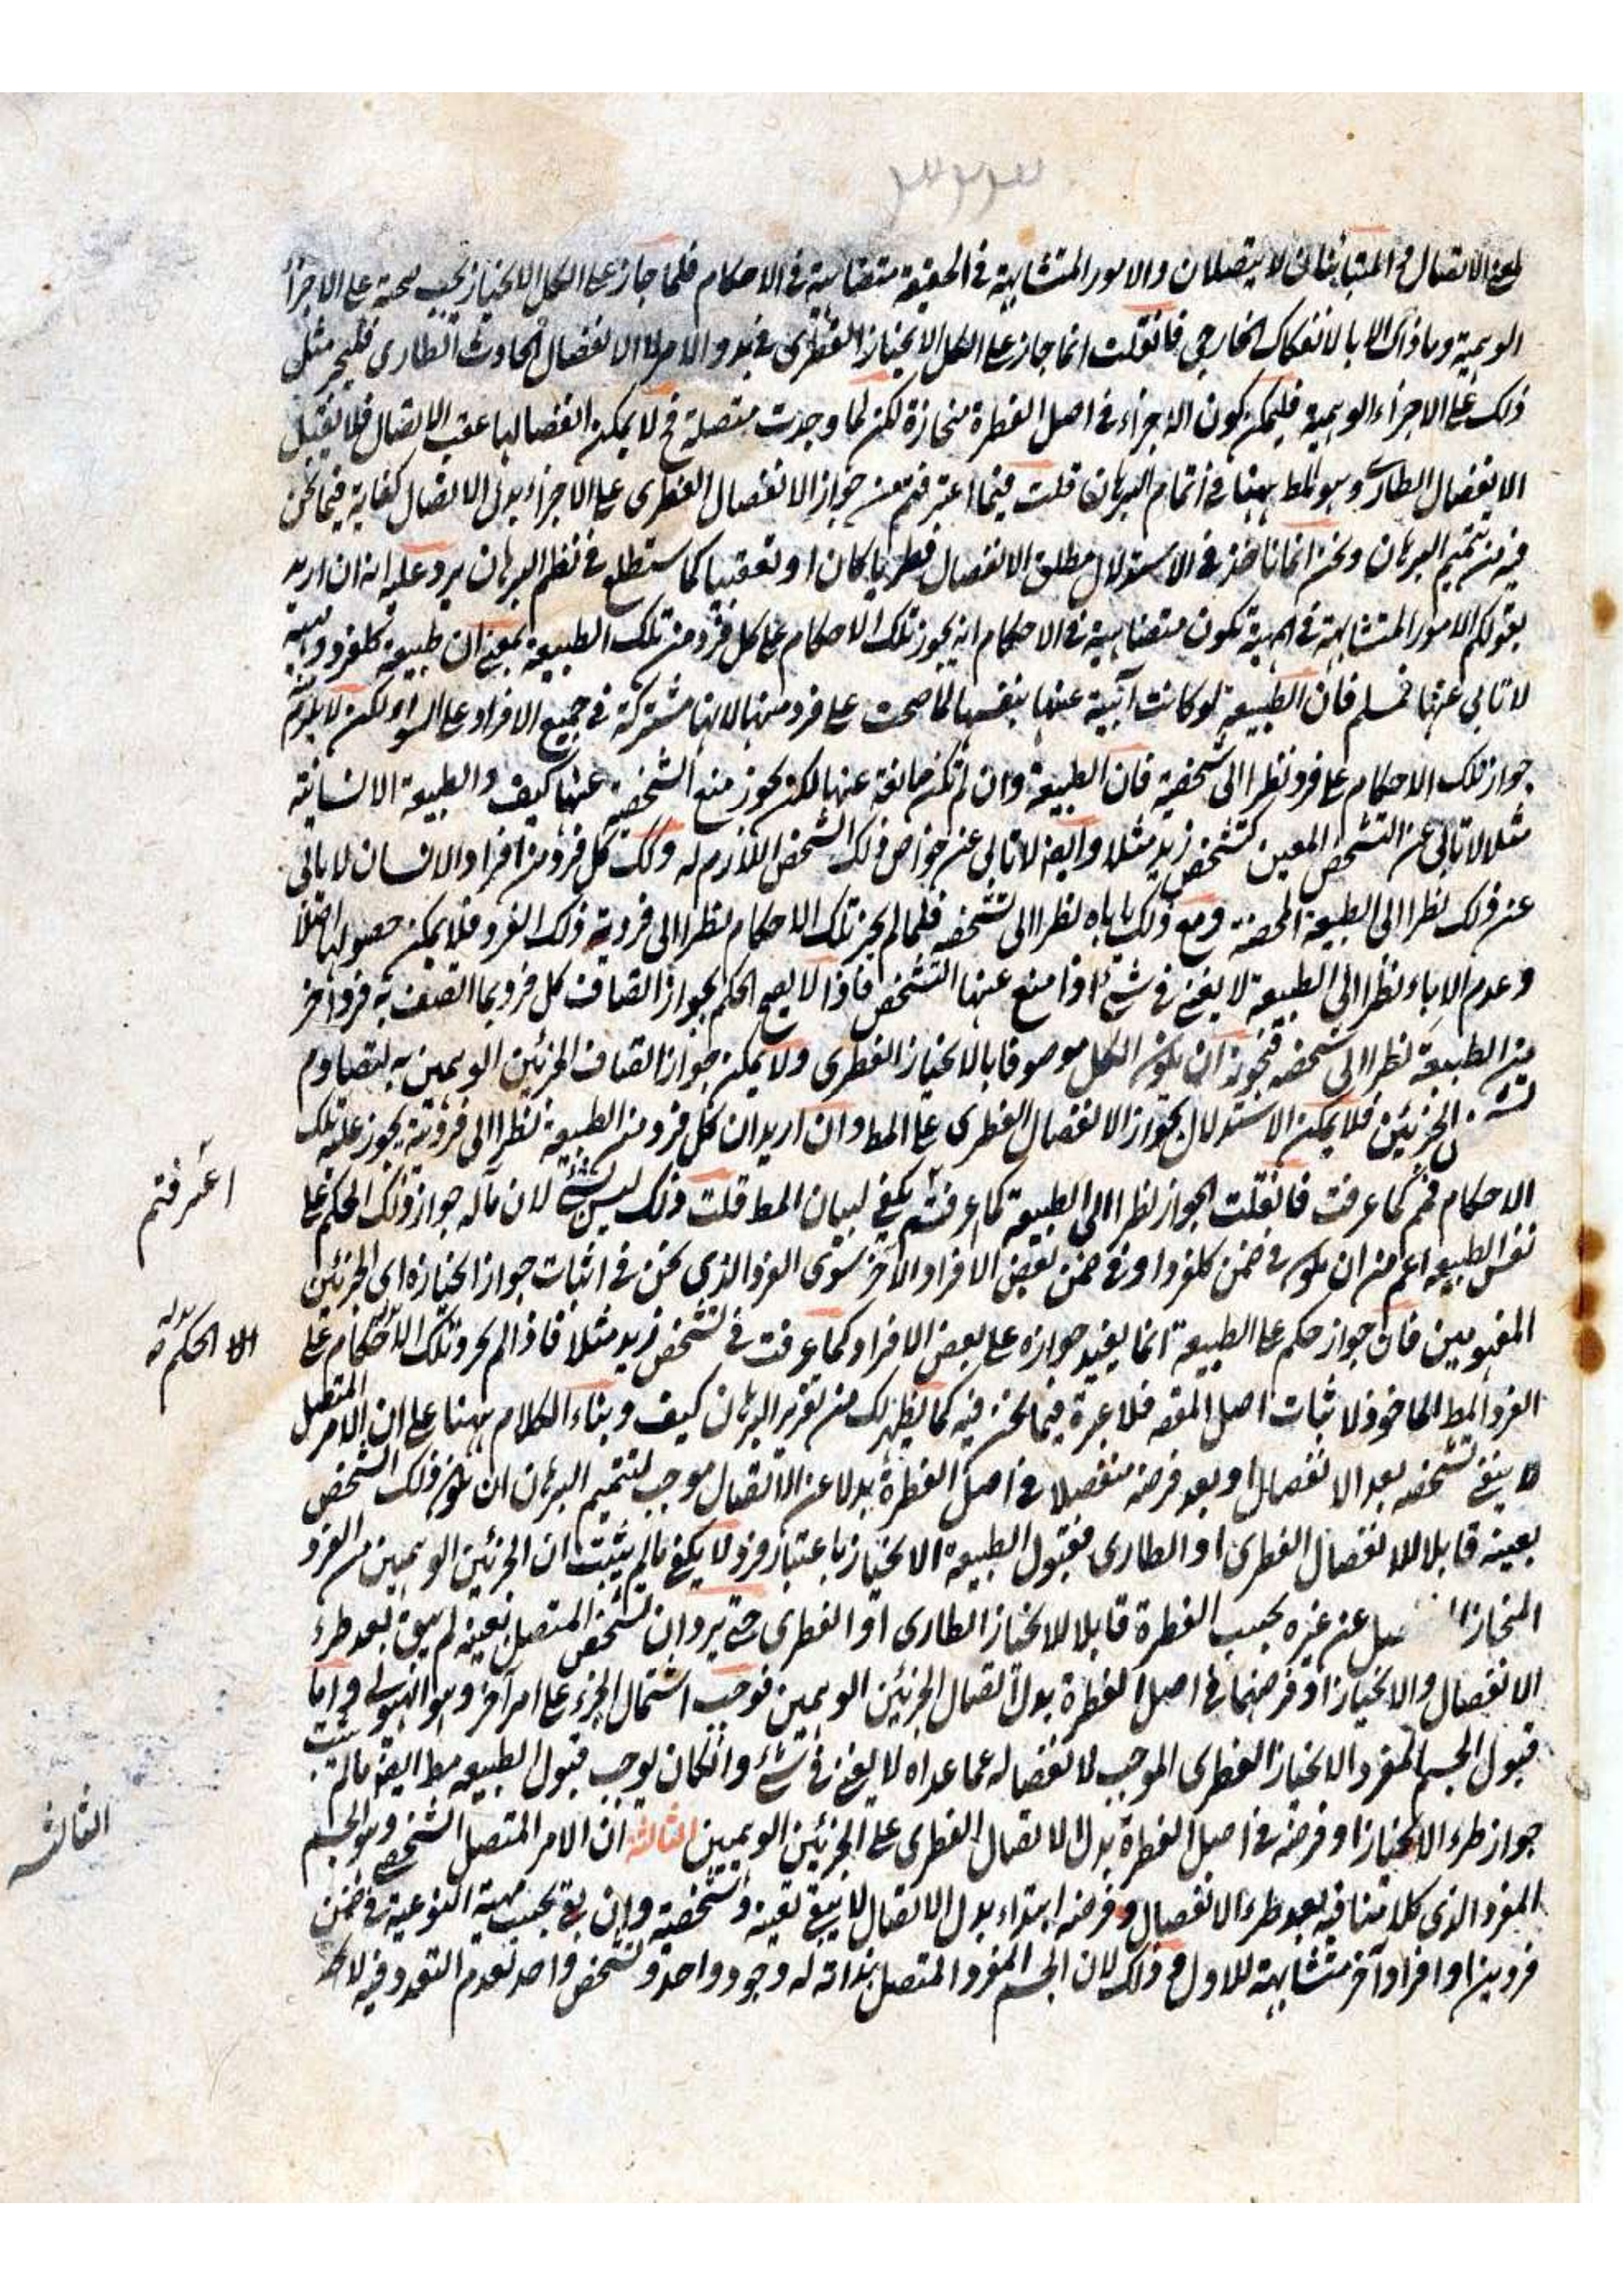 لمع الاتصال والمتباينان لا يتصلان والامور المتشابهة في الحقيقة متضاهية في الاحكام فلما جاز على الكل الانحياز يجب صحته على الاجزاء
الوهمية وما ذاك الا بالانفكاك الخارجي فانقلت انما جاز على الكل الانحياز الفطرى في بدو الامر لا الانفصال الحادث الطارى فليجز مثل
ذلك على الاجزاء الوهمية فليمكن كون الاجزاء في اصل الفطرة منحازة لكن لما وجدت متصلة فح لا يمكن انفصالها عقب الاتصال فلا تقبل
الانفصال الطارى وهو المط ههنا في اتمام البرهان قلت فيما اعترفتم من جواز الانفصال الفطرى على الاجزاء بدل الاتصال كفاية فيما نحن
فيه من تتميم البرهان ونحن انما ناخذ في الاستدلال مطلق الانفصال فطريا كان او تعقبيا كما ستطلع في نظم البرهان يرد عليه انه ان اريد
بقولكم الامور المتشابهة في المهية تكون متضاهية في الاحكام انه يجوز تلك الاحكام على كل فرد من تلك الطبيعة بمعنى ان طبيعة كلفرد ومهيته
لا تابى عنها فمسلم فان الطبيعة لو كانت آبية عنها بنفسها لما صحت على فرد منها لانها مشتركة في جميع الافراد على السواء ولكن لا يلزم منه
جواز تلك الاحكام على فرد نظرا الى شخصية فان الطبيعة وان لم تكن مانعة عنها لكن يجوز منع الشخصية عنها كيف والطبيعة الانسانية
مثلا لا تابى عن التشخص المعين كتشخص زيد مثلا وايضا لا تابى عن خواص ذلك الشخص اللازم له وكك كل فرد من افراد الانسان لا يابى
عن ذلك نظرا الى الطبيعة المحضة ومع ذلك ياباه نظرا الى تشخصه فلما لم يجز تلك الاحكام نظرا الى فردية ذلك الفرد فلا يمكن حصولها اصلا
وعدم الاباء نظرا الى الطبيعة لا يغنى في شئ اذا منع عنها التشخص فاذا لا يصح الحكم بجواز اتصاف كل فرد بما اتصف به فرد اخر
من الطبيعة نظرا الى تشخصه فيجوز ان يكون الكل موصوفا بالانحياز الفطرى ولا يمكن جواز اتصاف الجزئين الوهمين به لتصادم
الجزئين فلا يمكن الاستدلال بجواز الانفصال الفطرى على المط وان اريد ان كل فرد من الطبيعة نظرا الى فرديته يجوز عليه تلك
الاحكام فمم كما عرفت فانقلت الجواز نظرا الى الطبيعة كما عرفتم يكفى لبيان المط قلت ذلك ليس بشئ لان مآله جواز ذلك الحكم على
نفس الطبيعة اعم من ان يكون في ضمن كلفرد او في ضمن بعض الافراد الاخر سوى الفرد الذي نحن في اثبات جواز انحيازه اى الجزئين
المفهومين فان جواز حكم على الطبيعة انما يفيد جوازه على بعض الافراد كما عرفت في تشخص زيد مثلا فاذا لم يجز تلك الاحكام على
الفرد المط الماخوذ لاثبات اصل المقصد فلا عبرة فيما نحن فيه كما يظهر لك من تقرير البرهان كيف وبناء الكلام ههنا على ان الامر المتصل
لا يبقى تشخصه بعد الانفصال او بعد فرضه منفصلا في اصل الفطرة بدلا عن الاتصال موجب لتتميم البرهان ان يكون ذلك الشخص
بعينه قابلا للانفصال الفطرى او الطارى فقبول الطبيعة الانحياز باعتبار فرد لا يكفى ما لم يثبت ان الجزئين الوهمين من الفرد
المنحاز عن غيره بحسب الفطرة قابلا للانحياز الطارى او الفطرى حتى يرد ان تشخص المتصل بعينه لم يبق بعد طرء
الانفصال والانحياز او فرضهما في اصل الفطرة بدل اتصال الجزئين الوهمين فوجب اشتمال الجزء على امر آخر وهو الهيولى واما
قبول الجسم المفرد الانحياز الفطرى الموجب لانفصاله عما عداه لا يغنى في شئ وان كان يوجب قبول الطبيعة مط ايضا ما لم يثبت
جواز طرء الانحياز او فرضه في اصل الفطرة بدل الاتصال الفطرى على الجزئين الوهميين الثالثة ان الامر المتصل الشخصى وهو الجسم
المفرد الذى كلامنا فيه بعد طرء الانفصال وفرضه ابتداء بدل الاتصال لا يبقى تعينه وتشخصيته وان بقى بحسب مهيته النوعية في ضمن
فردين او افراد آخر متشابهة للاول وذلك لان الجسم المفرد المتصل بذاته له وجود واحد وتشخص واحد لعدم التعدد فيه لا
اعترفتم
الا الحكم
الثالثه